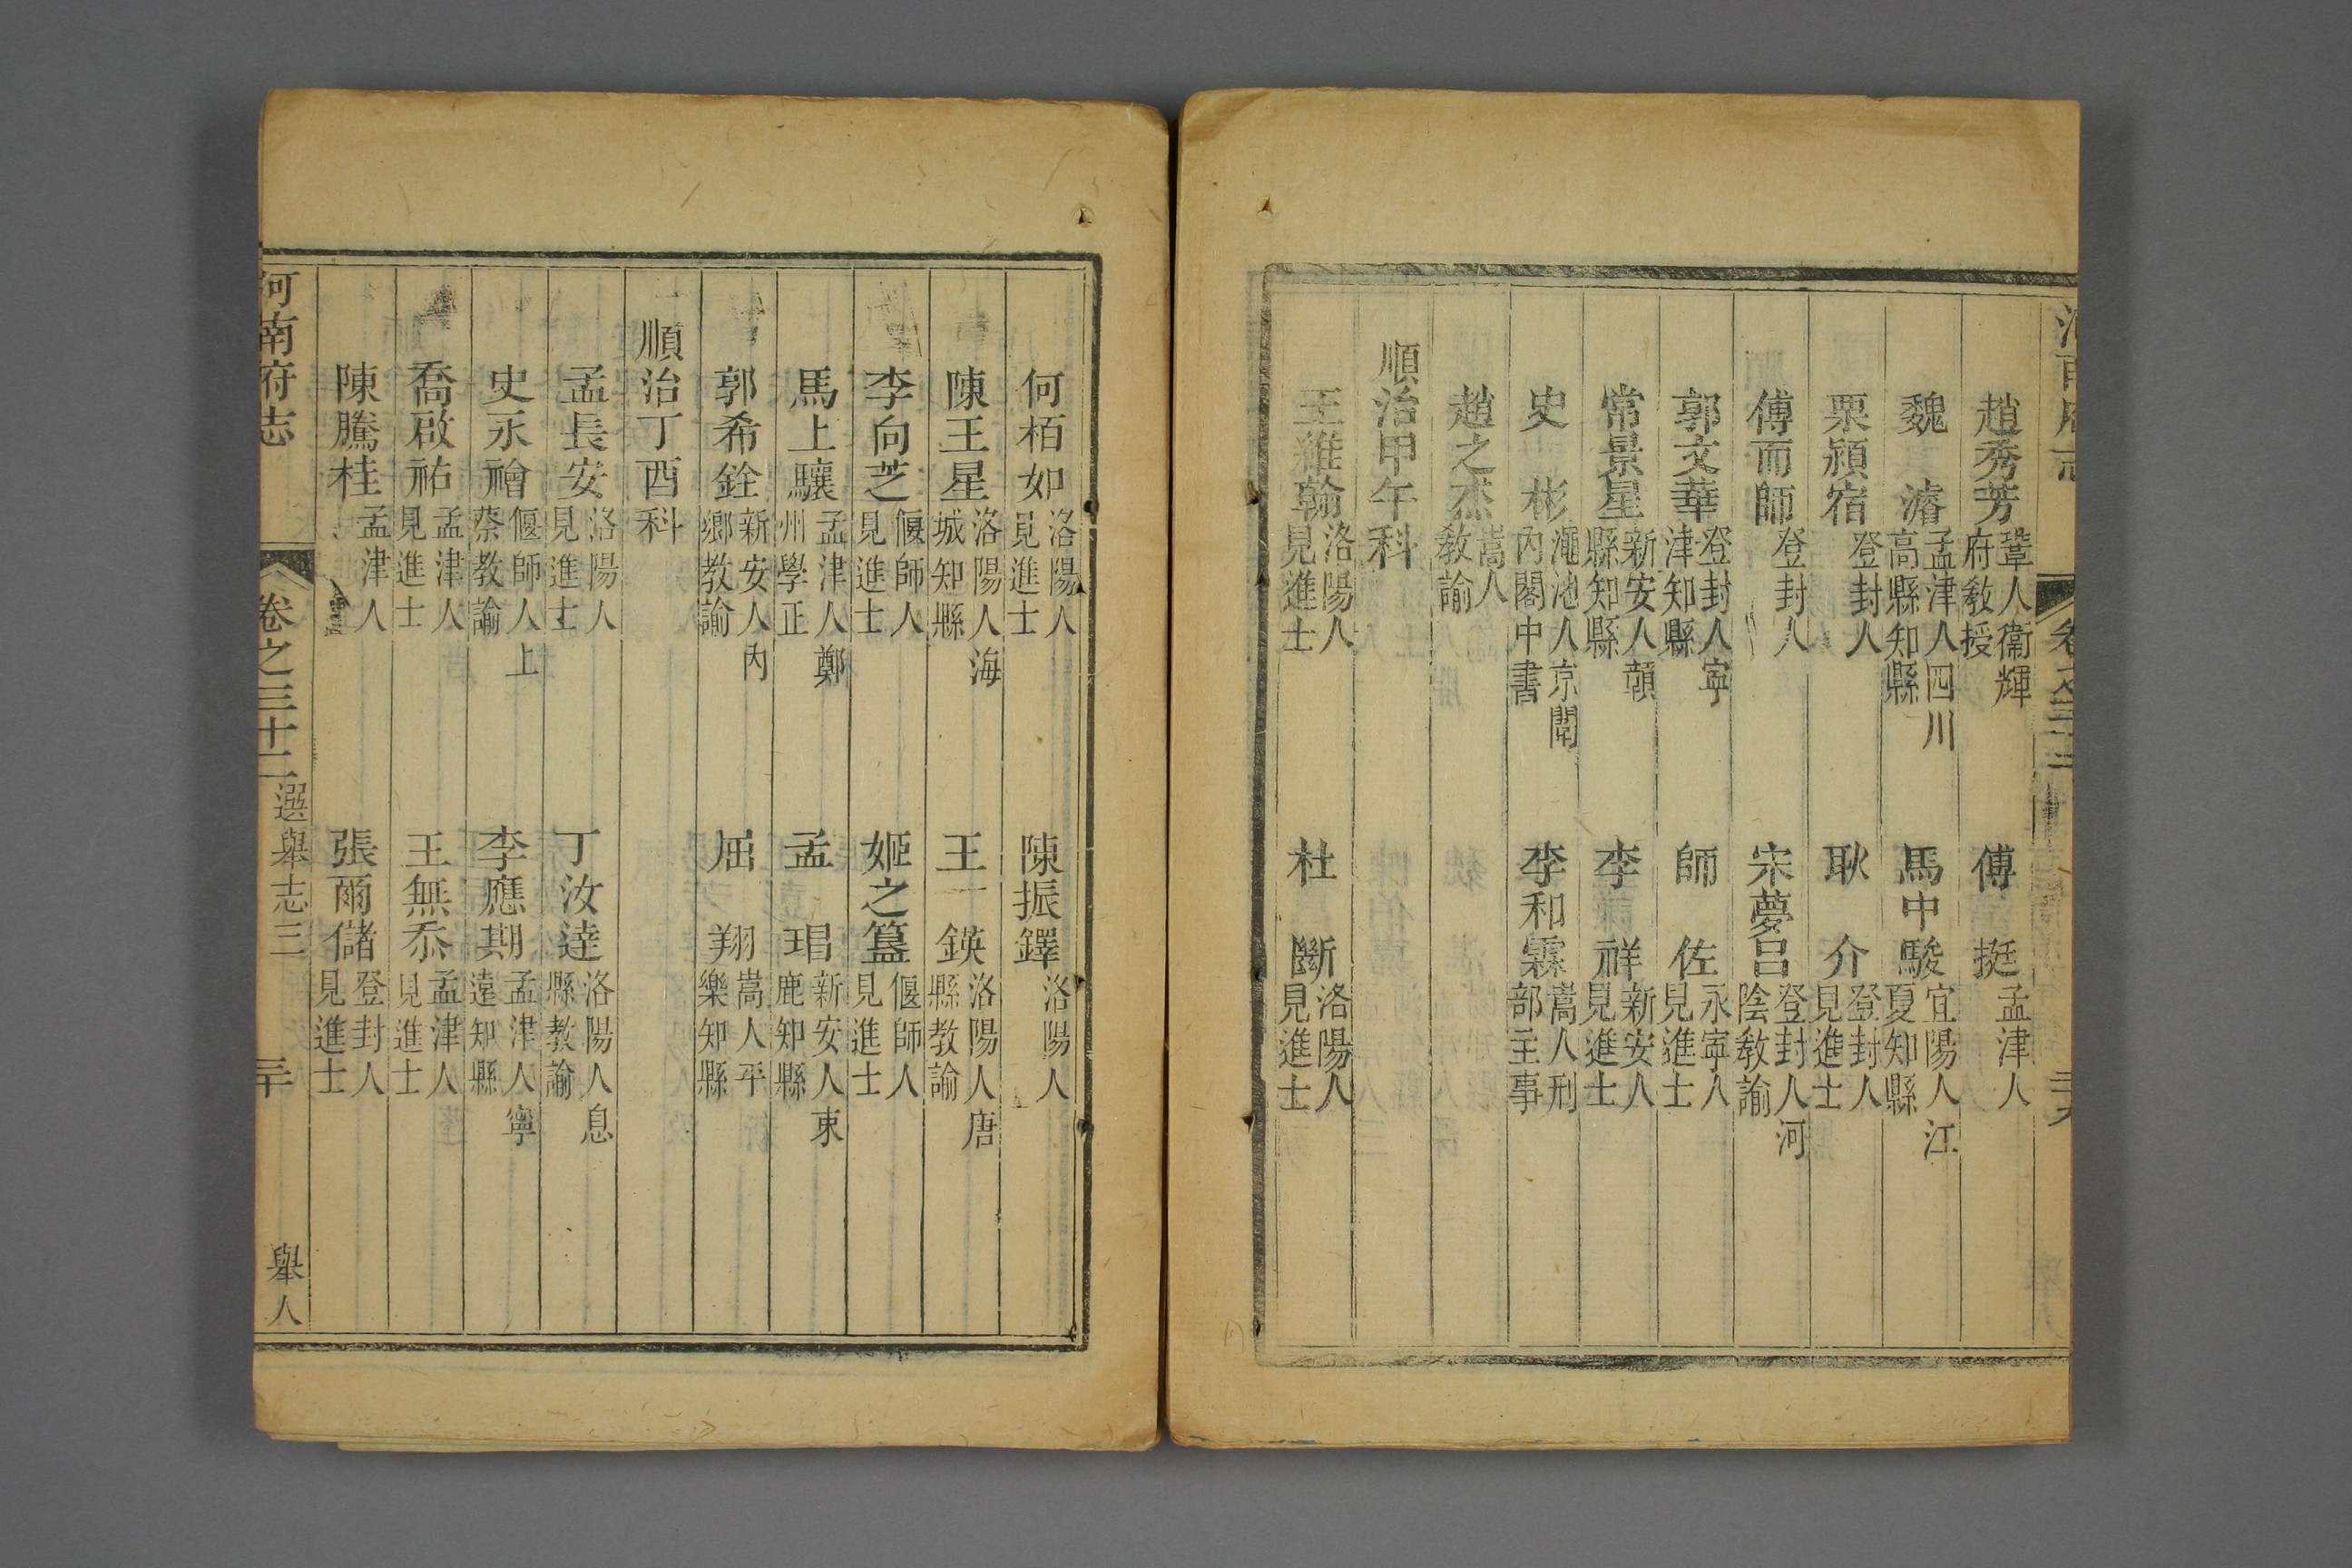 趙秀芳 鞏人衞輝府敎授 傅挺 孟津人
魏濬 孟津人四川高縣知縣 馬中駿 宜陽人江夏知縣
栗潁宿 登封人 耿介 登封人見進士
傅而師 登封人 宋夢呂 登封人河陰敎諭
郭文華 登封人寧津知縣 師佐 永寧人見進士
常景星 新安人韻縣知縣 李祥 新安人見進士
史彬 澠池人京闈內閣中書 李和霖 嵩人刑部主事
趙之杰 嵩人敎諭
順治甲午科
王維翰 洛陽人見進士 杜斷 洛陽人見進士
何栢如 洛陽人見進士 陳振鐸 洛陽人
陳王星 洛陽人海城知縣 王一鍈 洛陽人唐縣教諭
李向芝 偃師人見進士 姬之簋 偃師人見進士
馬上驤 孟津人鄭州學正 孟琄 新安人東鹿知縣
郭希銓 新安人內鄉教諭 屈翔 嵩人平樂知縣
順治丁酉科
孟長安 洛陽人見進士 丁汝達 洛陽人息縣教諭
史永禬 偃師人上蔡教諭 李應期 孟津人寧遠知縣
喬啟祐 孟津人見進士 王無忝 孟津人見進士
陳騰桂 孟津人 張爾儲 登封人見進士
河南府志 卷之三十二 選舉志三 三十 舉人